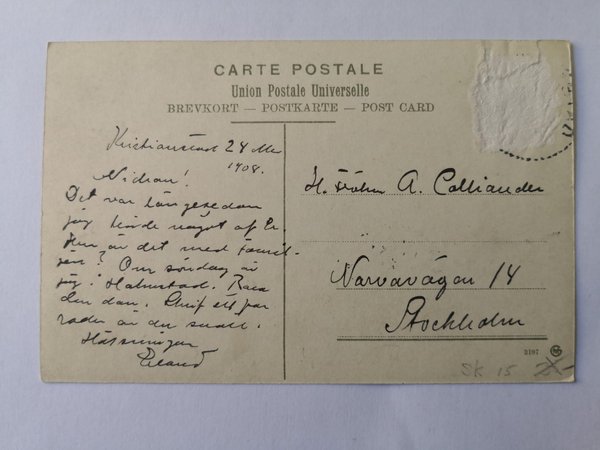 CARTE POSTALE
Union Postale Universelle
BREVKORT — POSTKARTE — POST CARD
Kristianstad 24
1908.
Det var länge sedan
jag hörde något af Er.
Hur är det med famil-
jen? Om söndag är
jag i Halmstad. Bara
den dan. Skrif ett par
rader är du snäll.
Hälsningar
H. Fröken A. Calliander
Narvavägen 14
Stockholm
3197
SK 15